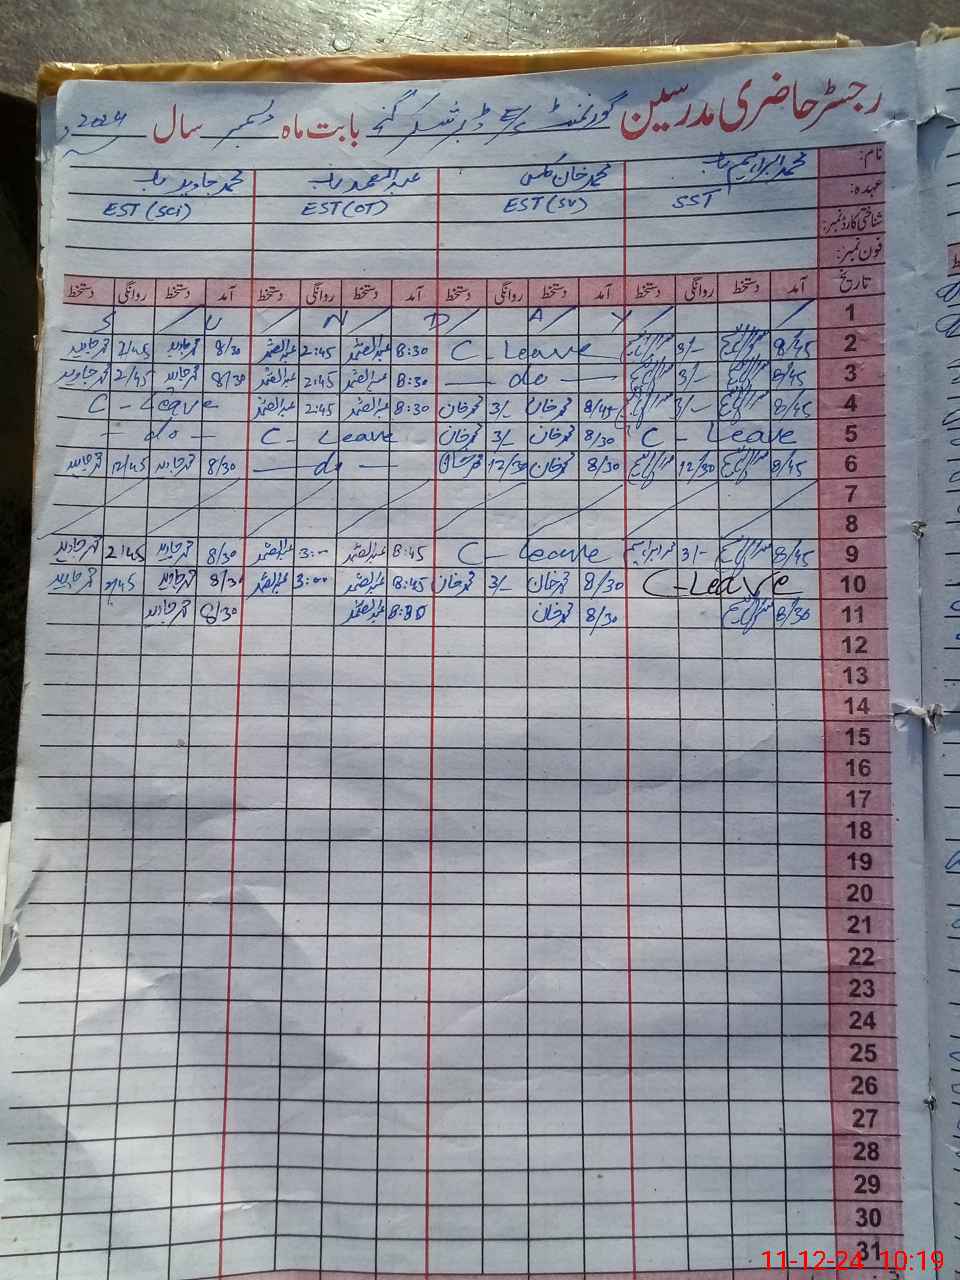 رجسٹر حاضری مدرسین گورنمنٹ بابت ماہ دسمبر سال 2024
نام: محمد ابراہیم محمد خان عبدالصمد محمد جاوید
عہدہ: SST EST (SV) EST (OT) EST (SCi)
شناختی کارڈ نمبر:
فون نمبر:
تاریخ آمد دستخط روانگی دستخط آمد دستخط روانگی دستخط آمد دستخط روانگی دستخط آمد دستخط روانگی دستخط
1 S U N D A Y
2 8/45 3/- C - Leave 8:30 عبدالصمد 2:45 عبدالصمد 8/30 محمد جاوید 2/45 محمد جاوید
3 8/45 3/- — do — 8:30 عبدالصمد 2:45 عبدالصمد 8/30 محمد جاوید 2/45 محمد جاوید
4 8/45 3/- 8/45 محمد خان 3/- محمد خان 8:30 عبدالصمد 2:45 عبدالصمد C - Leave
5 C - Leave 8/30 محمد خان 3/- محمد خان C - Leave - do -
6 8/45 12/30 8/30 محمد خان 12/30 محمد خان — do — 8/30 محمد جاوید 12/45 محمد جاوید
7
8
9 8/45 3/- محمد ابراہیم C - Leave 8:45 عبدالصمد 3:- عبدالصمد 8/30 محمد جاوید 2:45 محمد جاوید
10 C-Leave 8/30 محمد خان 3/- محمد خان 8:45 عبدالصمد 3:00 عبدالصمد 8/30 محمد جاوید 2/45 محمد جاوید
11 8/30 8/30 محمد خان 8:30 عبدالصمد 8/30 محمد جاوید
12
13
14
15
16
17
18
19
20
21
22
23
24
25
26
27
28
29
30
31
11-12-24 10:19